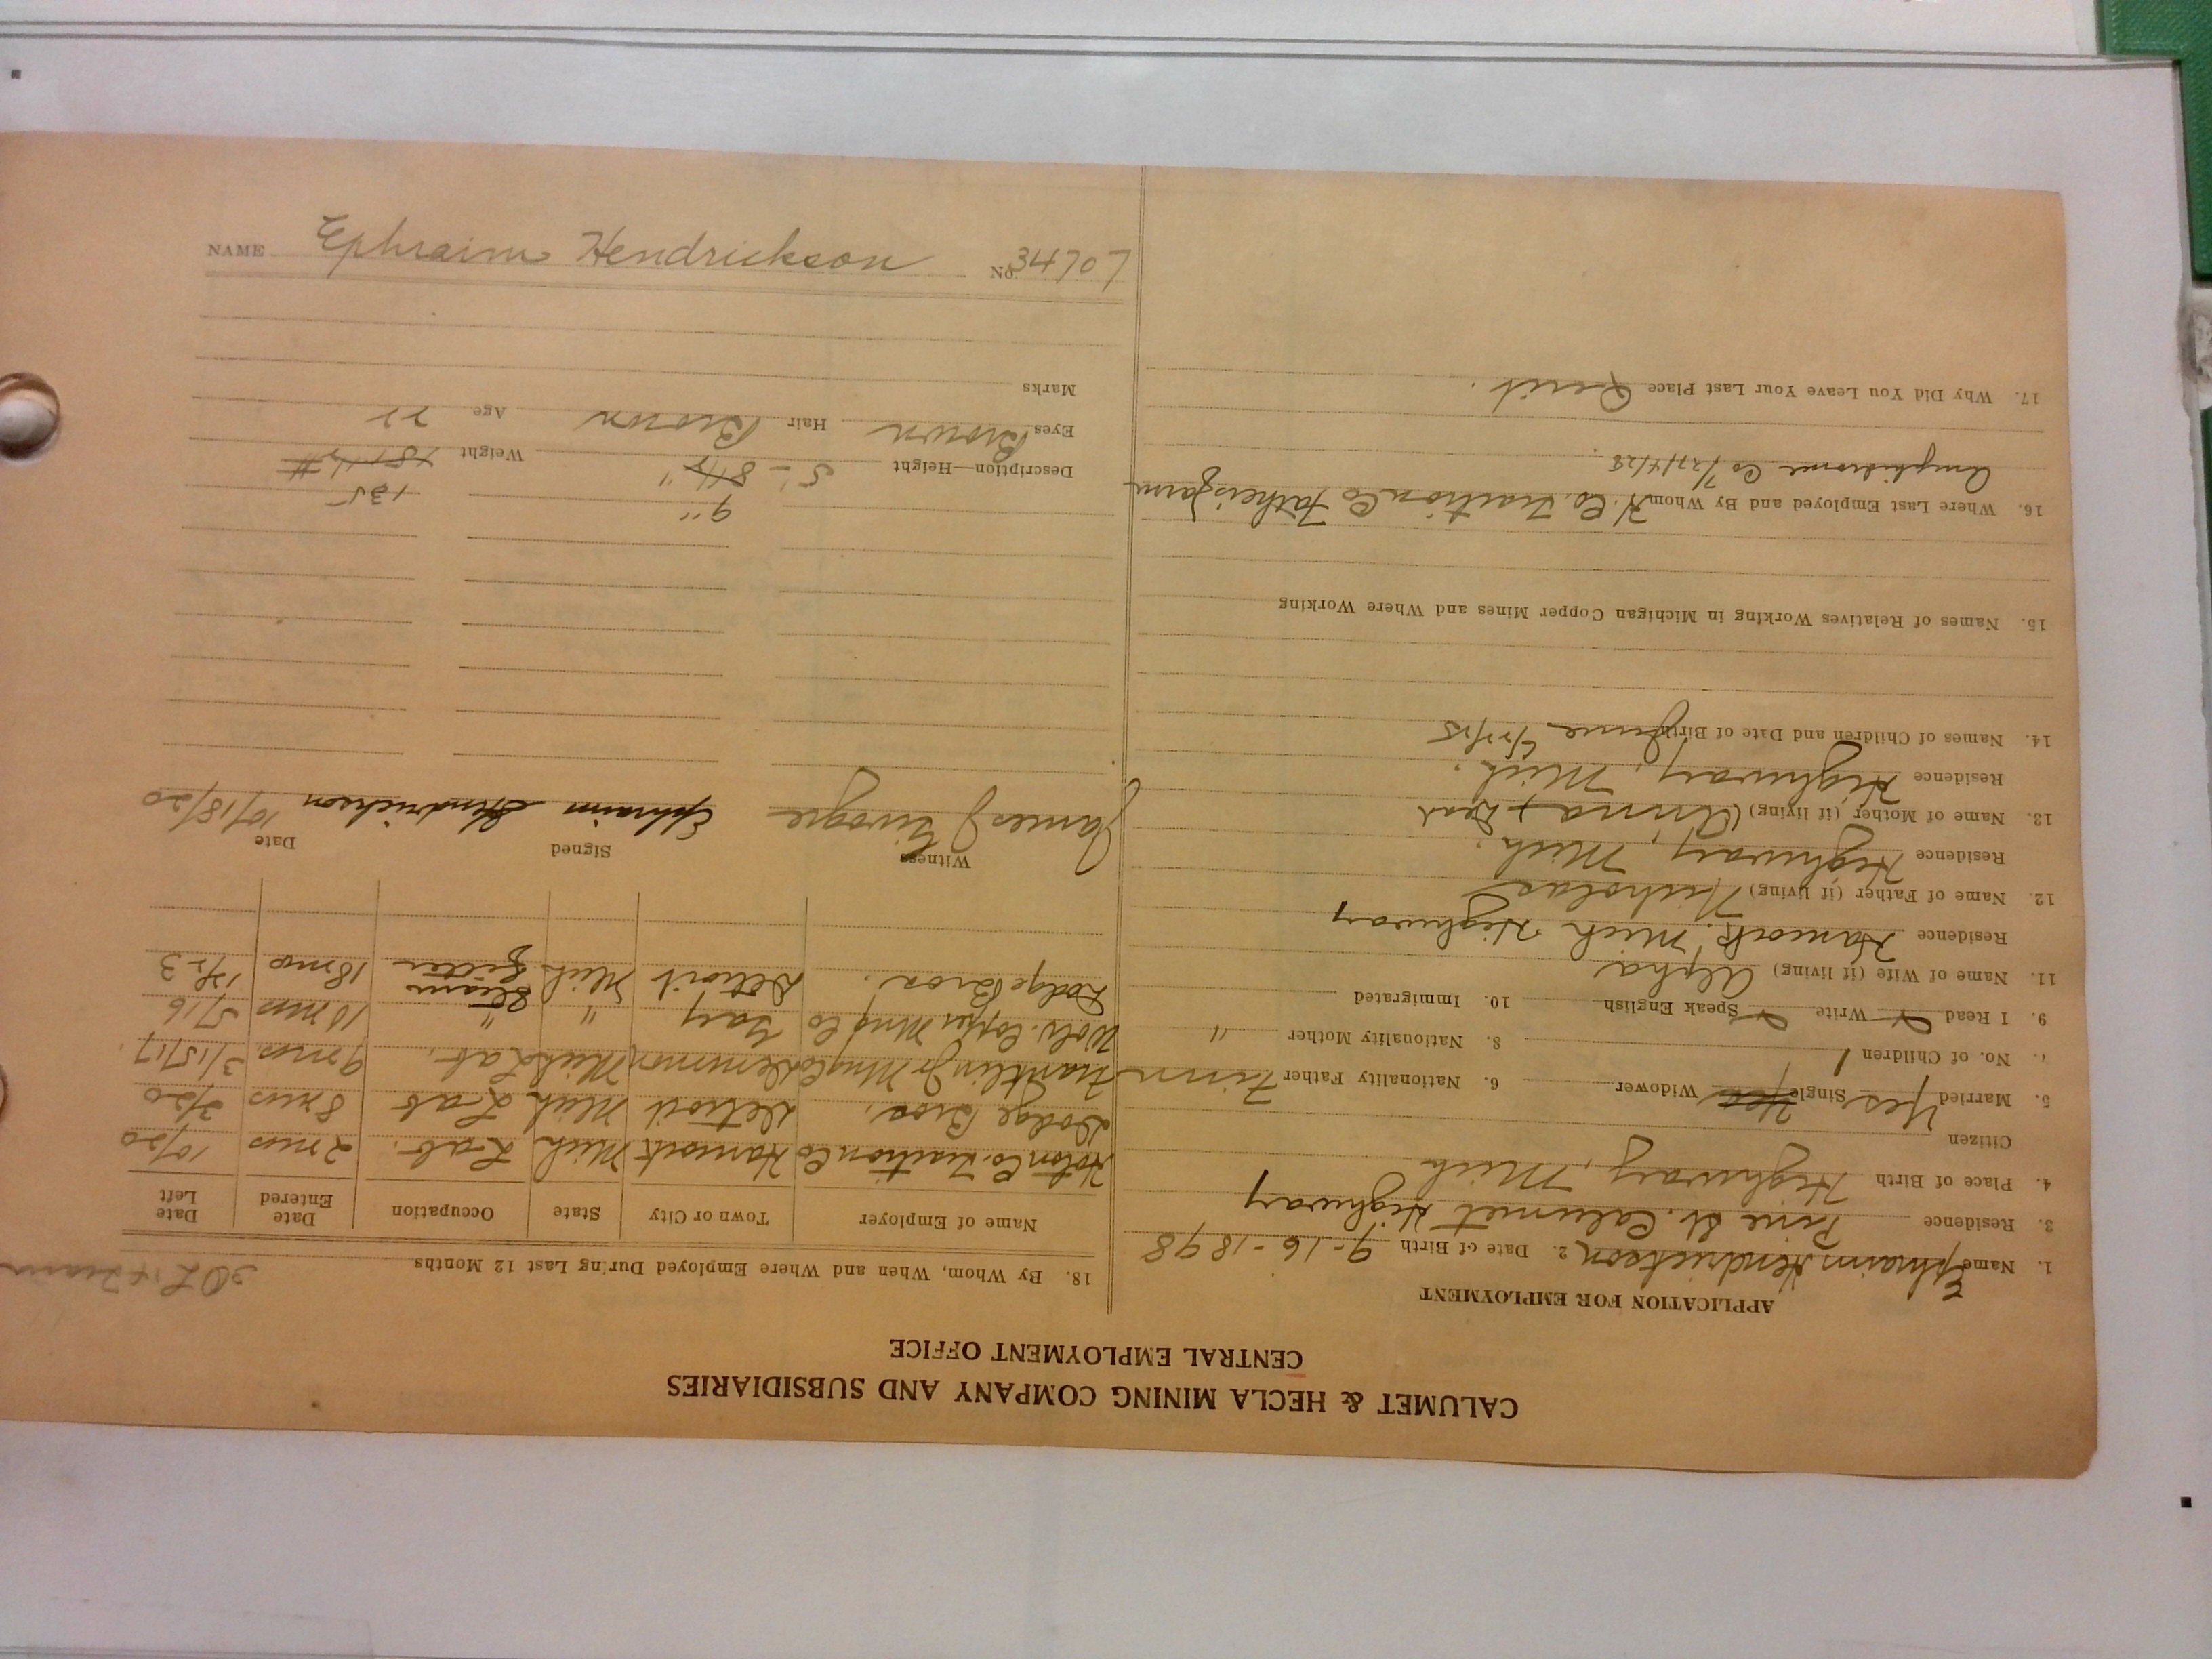 CALUMET & HECLA MINING COMPANY AND SUBSIDIARIES
CENTRAL EMPLOYMENT OFFICE
APPLICATION FOR EMPLOYMENT
1. Name Ephraim Hendrickson 2. Date of Birth 9-16-1898
3. Residence Pine St. Calumet Highway
4. Place of Birth Highway, Mich
Citizen
5. Married Yes Single Widower 6. Nationality Father Finn
7. No. of Children 1 8. Nationality Mother "
9. I Read Write Speak English 10. Immigrated
11. Name of Wife (if living) Alpha
Residence Hancock, Mich Highway
12. Name of Father (if living) Nicholas
Residence Highway, Mich.
13. Name of Mother (if living) (Anna) Dead
Residence Highway, Mich.
14. Names of Children and Date of Birth June
15. Names of Relatives Working in Michigan Copper Mines and Where Working
16. Where Last Employed and By Whom H. Co. Traction Co Father's farm
17. Why Did You Leave Your Last Place Quit.
18. By Whom, When and Where Employed During Last 12 Months
Name of Employer Town or City State Occupation Date Entered Date Left
Hoton Co. Traction Co Hancock Mich Lab. 2 mos 10/20
Dodge Bros. Detroit Mich Lab 8 mos
Franklin Jr Mng Co Demmon Mich Lab. 9 mos. 3/15/17.
Wolv. Copper Mng Co " " 5/16
Dodge Bros. Detroit Mich Steam Fitter 18 mos
Witness Signed Date
James J Ephraim Hendrickson 10/18/20
9" 135
Description—Height 5'- 8 1/2" Weight
Eyes Brown Hair Brown Age 22
Marks
NAME Ephraim Hendrickson No. 34707